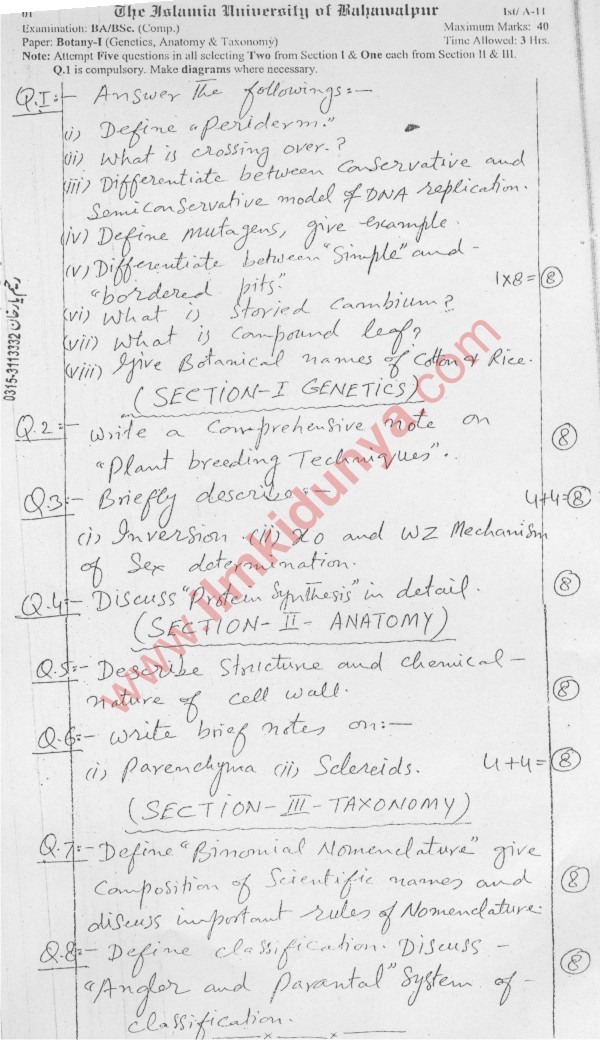 01 The Islamia University of Bahawalpur 1st/ A-11
Examination: BA/BSc. (Comp.) Maximum Marks: 40
Paper: Botany-I (Genetics, Anatomy & Taxonomy) Time Allowed: 3 Hrs.
Note: Attempt Five questions in all selecting Two from Section I & One each from Section II & III.
Q.1 is compulsory. Make diagrams where necessary.
Q.I:- Answer The followings:-
(i) Define "Periderm."
(ii) What is crossing over.?
(iii) Differentiate between Conservative and
Semiconservative model of DNA replication.
(iv) Define Mutagens, give example.
(v) Differentiate between "Simple" and -
"bordered pits." 1x8=8
(vi) What is Storied Cambium?
(vii) What is Compound leaf?
(viii) Give Botanical names of Cotton & Rice.
(SECTION-I GENETICS)
Q.2:- Write a Comprehensive note on 8
"Plant breeding Techniques".
Q.3:- Briefly describe:- 4+4=8
(i) Inversion. (ii) XO and WZ Mechanism
of Sex determination.
Q.4:- Discuss "Protein Synthesis" in detail. 8
(SECTION-II-ANATOMY)
Q.5:- Describe Structure and chemical-
nature of cell wall. 8
Q.6:- Write brief notes on:-
(i) Parenchyma (ii) Sclereids. 4+4=8
(SECTION-III-TAXONOMY)
Q.7:- Define "Binomial Nomenclature" give
Composition of Scientific names and 8
discuss important rules of Nomenclature.
Q.8:- Define classification. Discuss - 8
"Angler and Parantal" System of -
classification.
0315-3113332
www.ilmkidunya.com